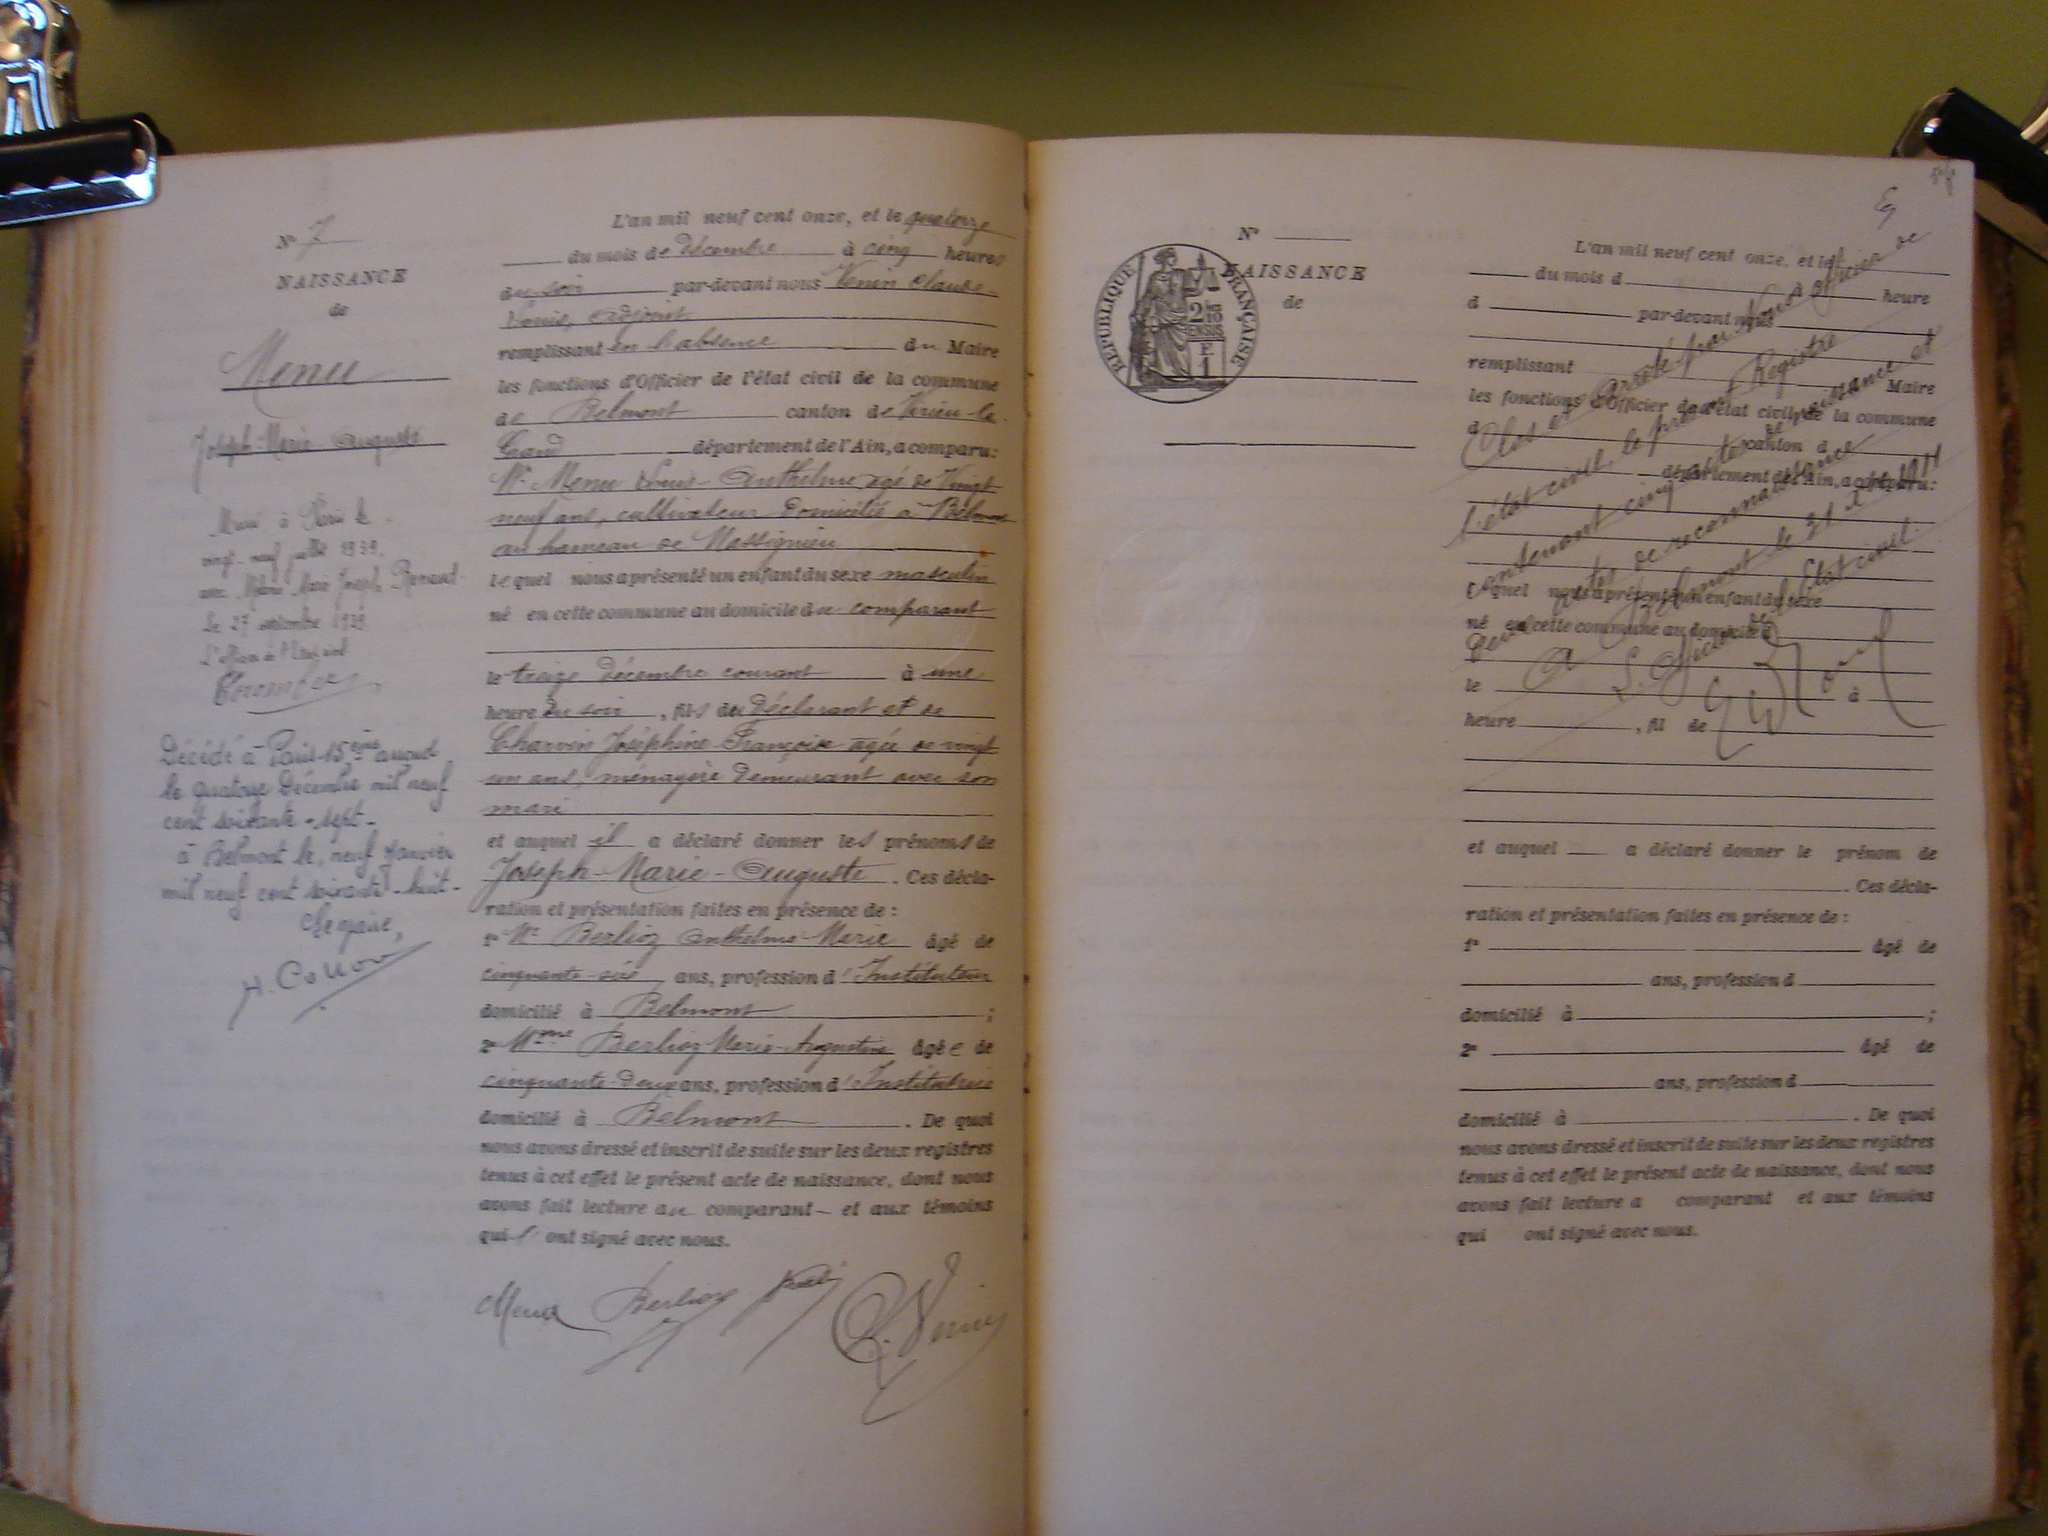 N° 7
NAISSANCE
de
Menu
Joseph-Marie Auguste
Marié à Paris le
vingt-neuf juillet 1939
avec Marie Joseph Renaud
Le 27 septembre 1939
L'officier de l'état civil
Décédé à Paris-15ème arrondt
le quatorze Décembre mil neuf
cent soixante-sept-
à Belmont le, neuf Janvier
mil neuf cent soixante-huit-
Le maire,
L'an mil neuf cent onze, et le quatorze
du mois de décembre à cinq heures
du soir par-devant nous Venin Claude-
Louis, adjoint
remplissant en l'absence du Maire
les fonctions d'Officier de l'état civil de la commune
de Belmont canton de Virieu-le-
Grand département de l'Ain, a comparu:
Mr Menu Louis-Anthelme agé de Vingt
neuf ans, cultivateur domicilié à Belmont
au hameau de Massignieu
lequel nous a présenté un enfant du sexe masculin
né en cette commune au domicile du comparant
le treize décembre courant à une
heure du soir, fils du Déclarant et de
Charvin Joséphine-Françoise agée de vingt
un ans, ménagère demeurant avec son
mari
et auquel il a déclaré donner les prénoms de
Joseph-Marie-Auguste. Ces décla-
ration et présentation faites en présence de:
1° Mr Berlioz Anthelme-Marie âgé de
cinquante-six ans, profession d'Instituteur
domicilié à Belmont;
2° Mme Berlioz Marie-Augustine âgée de
cinquante-deux ans, profession d'Institutrice
domicilié à Belmont. De quoi
nous avons dressé et inscrit de suite sur les deux registres
tenus à cet effet le présent acte de naissance, dont nous
avons fait lecture au comparant – et aux témoins
qui l' ont signé avec nous.
Menu Berlioz Venin
N°
NAISSANCE
de
RÉPUBLIQUE FRANÇAISE
L'an mil neuf cent onze, et le
du mois d à heure
d par-devant nous
remplissant Maire
les fonctions d'Officier de l'état civil de la commune
d canton d
département de l'Ain, a comparu:
lequel nous a présenté un enfant du sexe
né en cette commune au domicile d
le à
heure, fil de
et auquel a déclaré donner le prénom de
. Ces décla-
ration et présentation faites en présence de:
1° âgé de
ans, profession d
domicilié à ;
2° âgé de
ans, profession d
domicilié à . De quoi
nous avons dressé et inscrit de suite sur les deux registres
tenus à cet effet le présent acte de naissance, dont nous
avons fait lecture a comparant et aux témoins
qui ont signé avec nous.
Clos et arrêté par nous officier de
l'état civil, le présent Registre
contenant cinq actes de naissance et
deux actes de reconnaissance
A Belmont le 31 Xbre 1911
L'Officier de l'état civil